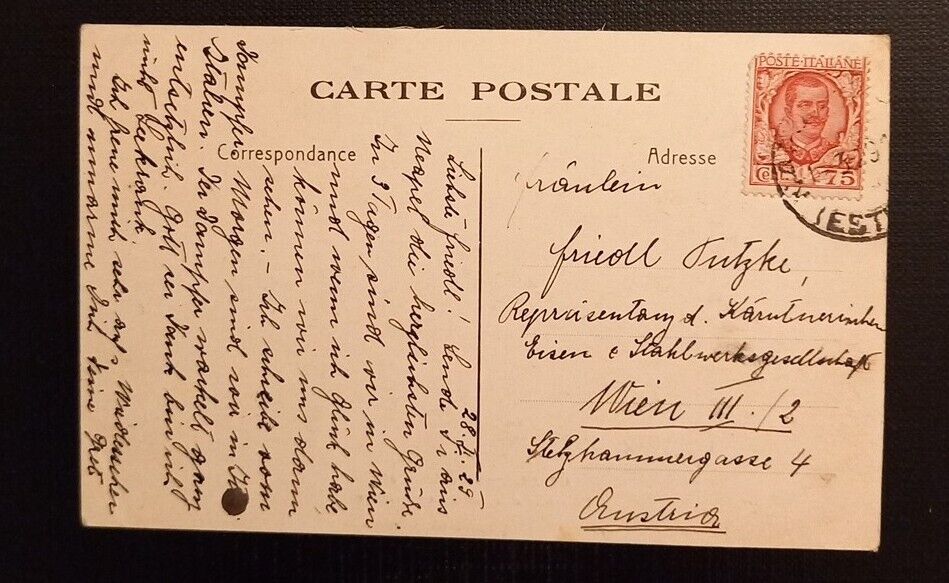 CARTE POSTALE
Correspondance
Adresse
POSTE·ITALIANE
75
(EST
28. 29
Liebste Friedl! Sende Dir aus
Neapel die herzlichsten Grüße.
In 3 Tagen sind wir in Wien
und wenn ich Glück habe
können wir uns dann
sehen. – Ich schreibe vom
Dampfer. Morgen sind wir in
Italien. Der Dampfer wackelt ganz
entsetzlich. Gott sei Dank bin ich
nicht seekrank
Ich freue mich sehr aufs Wiedersehen
und umarme Dich Deine
Fräulein
Friedl Putzke,
Repräsentanz d. Kärntnerischen
Eisen & Stahlwerksgesellschaft
Wien III./2
Stelzhammergasse 4
Austria